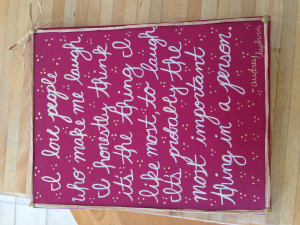 I love people
who make me laugh
I honestly think
its the thing I
like most to laugh
It's probably the
most important
thing in a person.
audrey hepburn